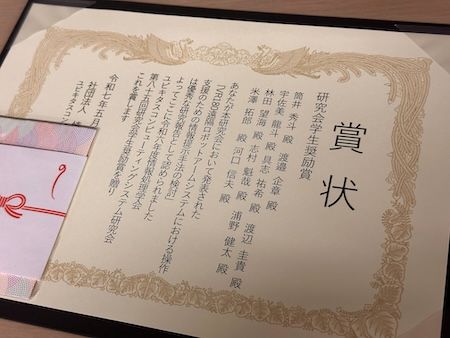 賞状
研究会学生奨励賞
筒井 秀斗 殿 渡邉 企章 殿 渡辺 圭貴 殿
宇佐美 龍斗 殿 具志 祐希 殿
林田 望海 殿 志村 魁哉 殿 浦野 健太 殿
米澤 拓郎 殿 河口 信夫 殿
あなたが本研究会において発表された
「VR180遠隔ロボットアームシステムにおける操作
支援のための情報提示手法の検討」
は優秀な研究報告として認められました
よってここに令和六年度情報処理学会
ユビキタスコンピューティングシステム研究会
第八十五回研究会学生奨励賞を贈り
これを賞します
令和七年五月
社団法人
ユビキタスコン